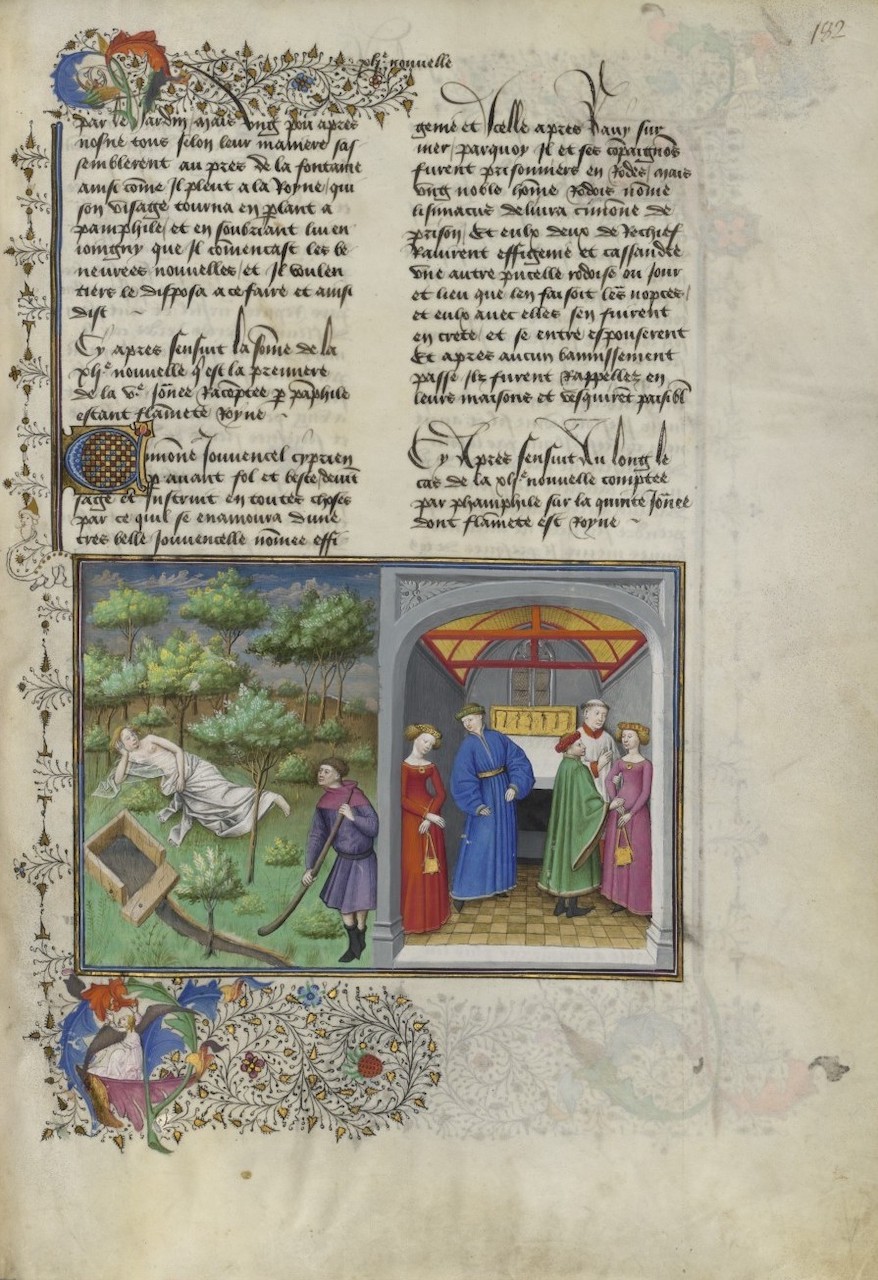 182
xlie nouvelle
par le Jardin, mais ung peu apres
nosne tous selon leur maniere sas
semblerent au pres de la fontaine
ainsi cõme Jl pleut a la Royne, qui
son visage tourna en plant a
pamphile, et en soubriant lui en
ioingny que Jl cõmencast les be
neurees nouvelles, et Jl voulen
tiers se disposa a ce faire et ainsi
dist
Cy apres sensuit la sõme de la
xlie nouvelle q̃ est la premiere
de la ve Jõnee Racõptee p pãphile
estant flãmete Royne
Cimone Jouvencel cyprien
p avant fol et beste devit
sage et Jnstruit en toutes choses
par ce quil se enamoura dune
tres belle Jouvencelle nõmee effi
genie et Jcelle apres Ravy sur
mer, parquoy Jl et ses cõpaignõs
furent prisonniers en Rodes, mais
ung noble hõme Rodois nõme
lisimacus delivra cimone de
prison, Et eulx deux de Rechief
Ravirent effigenie et cassandre
une autre pucelle rodoise ou Jour
et lieu que len faisoit les nopces,
et eulx avec elles sen fuirent
en crete, et se entre espouserent
Et apres aucun bannissement
passe Jlz furent Rappellez en
leurs maisons et vesquirẽt paisibl
Cy Apres sensuit Au long le
cas de la xlie nouvelle comptee
par phamphile sur la quinte Jõnee
dont flamete est Royne